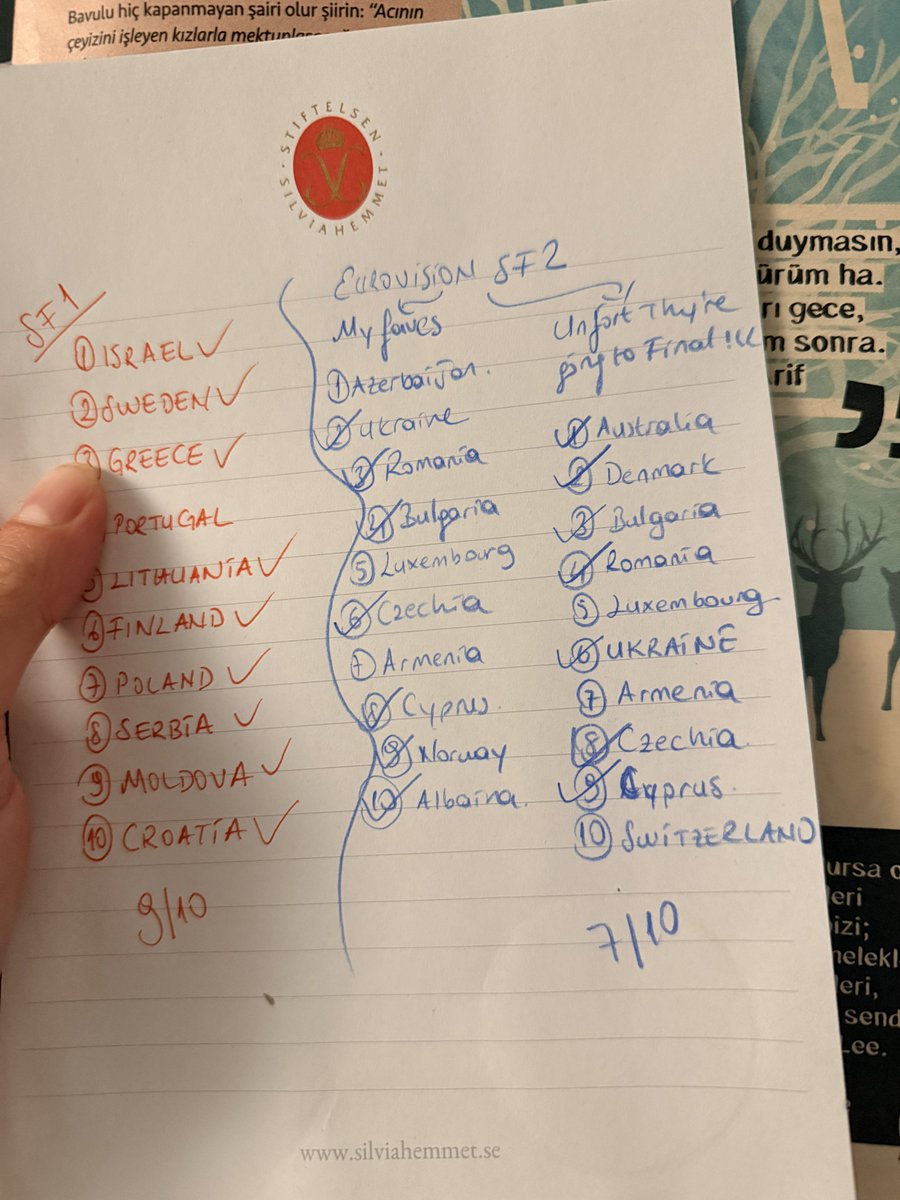 Bavulu hiç kapanmayan şairi olur şiirin: “Acının
çeyizini işleyen kızlarla
STIFTELSEN
SILVIAHEMMET
SF1
① ISRAEL ✓
② SWEDEN ✓
GREECE ✓
PORTUGAL
LITHUANIA ✓
⑥ FINLAND ✓
⑦ POLAND ✓
⑧ SERBIA ✓
⑨ MOLDOVA ✓
⑩ CROATIA ✓
9/10
EUROVISION SF2
My faves
① Azerbaijan.
② Ukraine
③ Romania
④ Bulgaria
⑤ Luxembourg
⑥ Czechia
⑦ Armenia
⑧ Cyprus.
⑨ Norway
⑩ Albaina.
Unfort They're
going to Final !
① Australia
② Denmark
③ Bulgaria
④ Romania
⑤ Luxembourg
⑥ UKRAINE
⑦ Armenia
⑧ Czechia.
⑨ Cyprus.
⑩ SWITZERLAND
7/10
www.silviahemmet.se
duymasın,
ürüm ha.
rı gece,
m sonra.
rif
ursa
eri
izi;
melekl
eleri,
send
Lee.